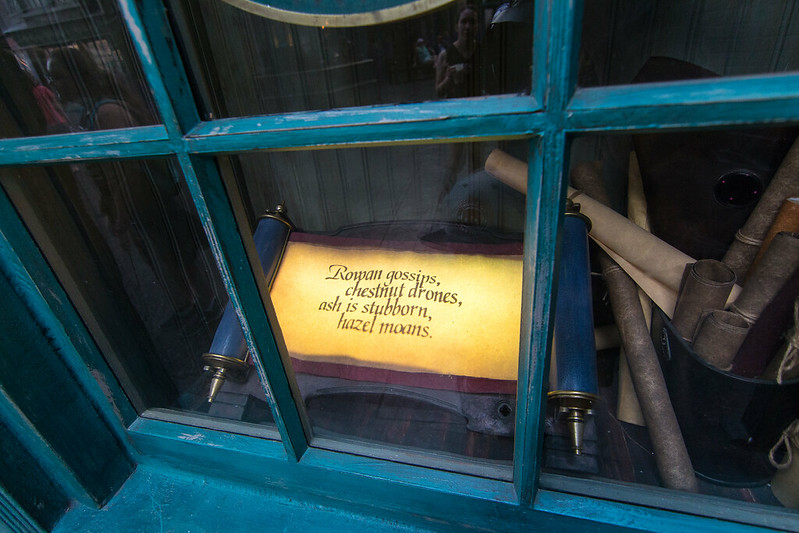 Rowan gossips,
chestnut drones,
ash is stubborn,
hazel moans.